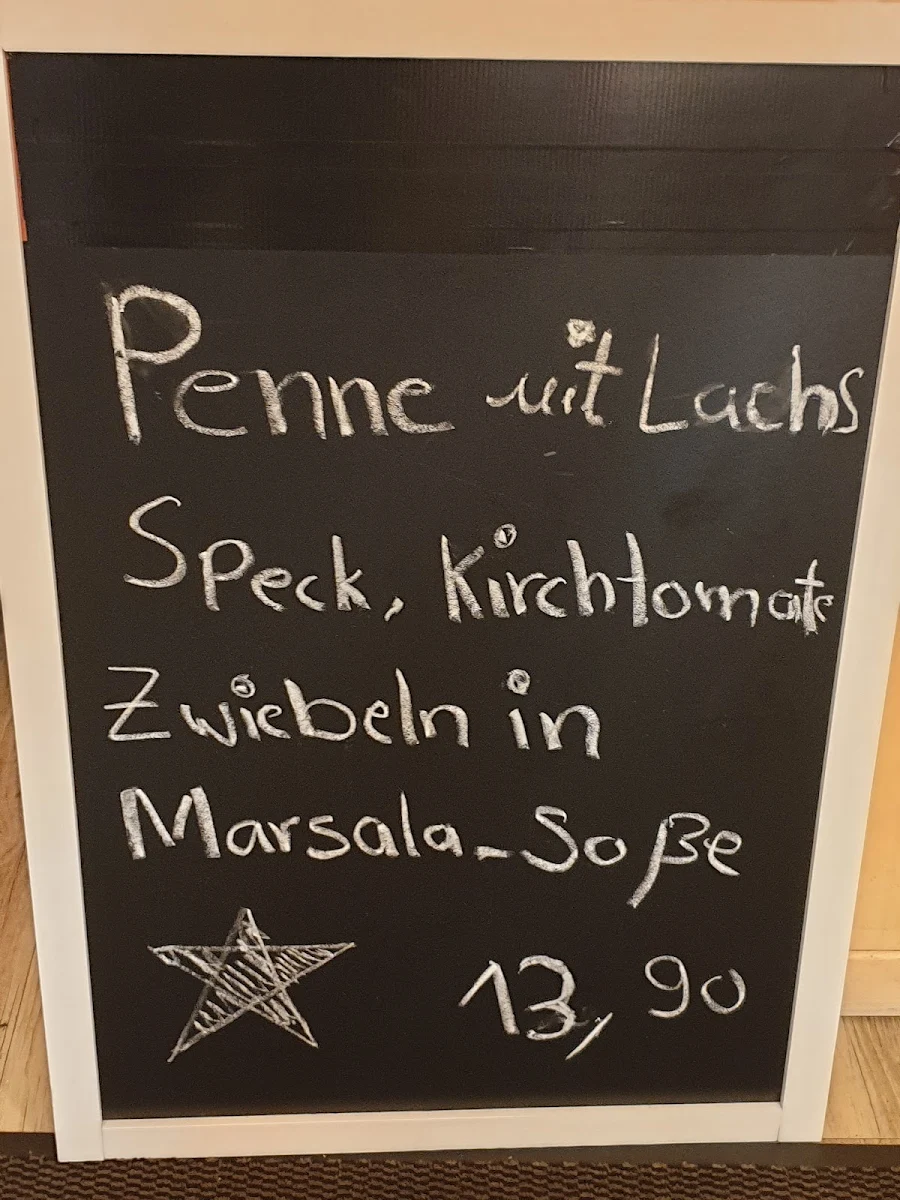 Penne mit Lachs
Speck, Kirchtomate
Zwiebeln in
Marsala-Soße
13,90